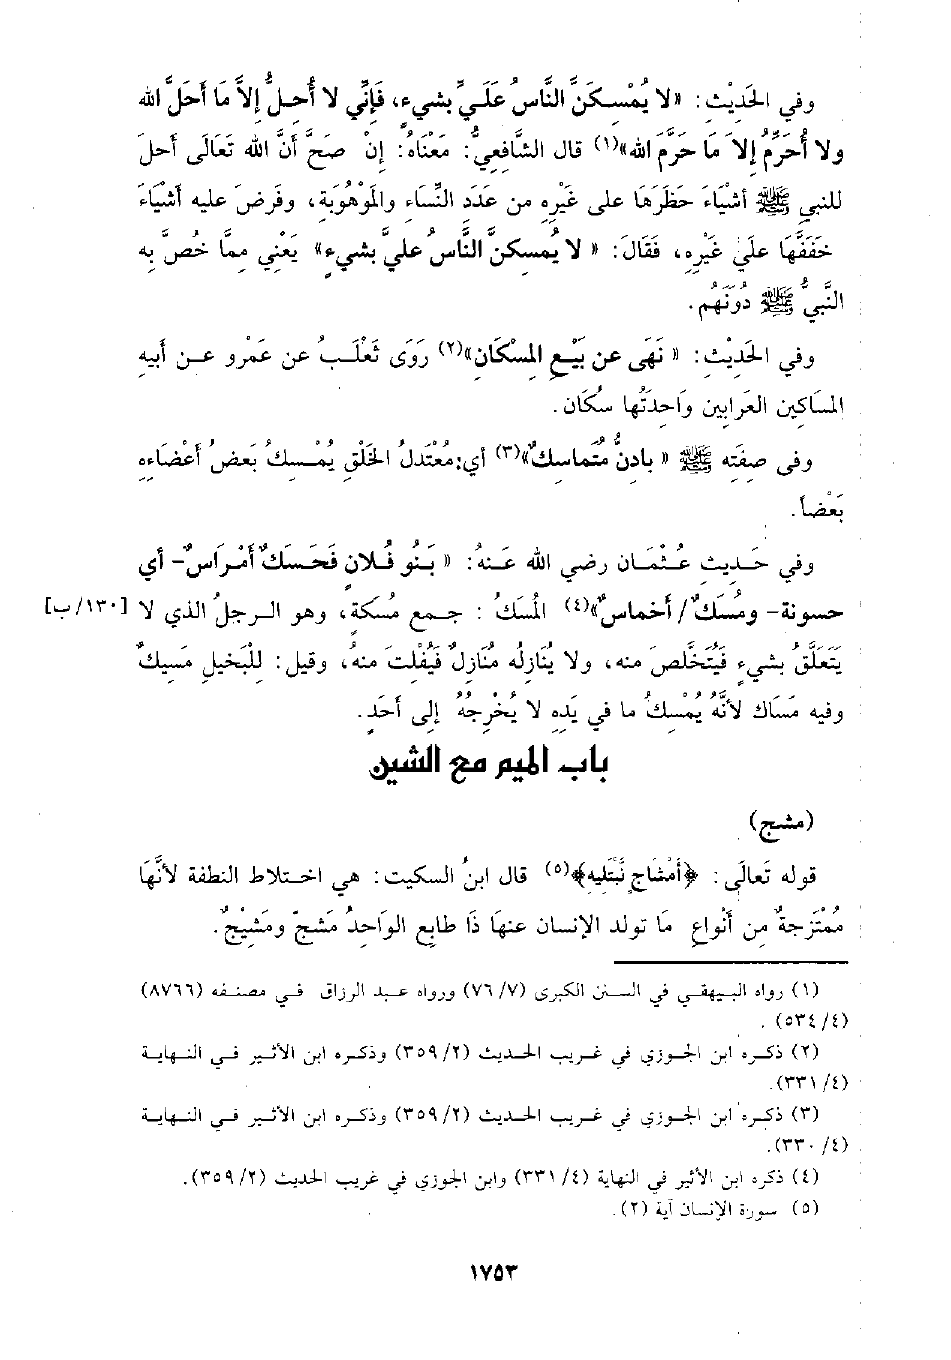 وفي الحَدِيْث: «لا يُمْسِكَنَّ النَّاسُ عَلَيِّ بشيءٍ، فَإنِّي لا أُحِلُّ إلاَّ مَا أَحَلَّ الله
ولا أُحَرِّمُ إلا مَا حَرَّمَ الله»(١) قال الشَّافِعيُّ: مَعْنَاهُ: إن صَحَّ أنَّ الله تَعَالَى أحلَ
للنبي ﷺ أشْيَاءَ حَظَرَهَا على غَيْرِهِ من عَدَدِ النِّسَاءِ والمَوْهُوبَةِ، وفَرضَ عليه أشْيَاءَ
خَفَفَّهَا عليَ غَيْرِهِ، فَقَالَ: « لا يُمسكنَّ النَّاسُ عليَّ بشيءٍ» يَعْنِي مِمَّا خُصَّ بِه
النَّبيُّ ﷺ دُونَهُم.
وفي الحَدِيْث: « نَهَى عن بَيْعِ المِسْكَان»(٢) رَوَى ثَعْلَبُ عن عَمْرو عن أبيه
المسَاكِين العَرابِين وَاحِدَتُها سُكَان.
وفى صِفَتِه ﷺ « بادِنٌ مُتَماسِكٌ»(٣) أي: مُعْتَدلُ الخَلْقِ يُمْسِكُ بَعضُ أعْضَاءِهِ
بَعْضاً.
وفي حَدِيثِ عُثْمَان رضي الله عَنهُ: « بَنُو فُلانٍ فَحَسَكٌ أَمْرَاسٌ- أي
حسونة- ومُسَكٌ/ أخماسٌ»(٤) المُسَكُ : جمع مُسْكَة، وهو الرجلُ الذي لا [١٣٠/ب]
يَتَعَلَّقُ بشيءٍ فَيُتَخَّلصَ منه، ولا يُنَازِلُه مُنَازِلٌ فَيُفْلتَ منهُ، وقيل: للبَخيلِ مَسِيكٌ
وفيه مَسَاك لأنَّهُ يُمْسِكُ ما في يَدِهِ لا يُخْرِجهُ إلى أحَدٍ.
باب الميم مع الشين
(مشج)
قوله تَعالَى: ﴿أَمْشَاجٍ نَّبْتَلِيهِ﴾(٥) قال ابنُ السكيت: هي اختلاط النطفة لأنَّهَا
مُمْتَزِجةٌ من أنْواعٍ مَا تولد الإنسان عنهَا ذَا طابِع الوَاحِدُ مَشجّ ومَشِيْجٌ.
(١) رواه البيهقي في السنن الكبرى (٧٦/٧) ورواه عبد الرزاق في مصنفه (٨٧٦٦)
(٥٣٤/٤) .
(٢) ذكره ابن الجوزي في غريب الحديث (٣٥٩/٢) وذكره ابن الأثير في النهاية
(٣٣١/٤).
(٣) ذكره ابن الجوزي في غريب الحديث (٣٥٩/٢) وذكره ابن الأثير في النهاية
(٣٣٠/٤).
(٤) ذكره ابن الأثير في النهاية (٣٣١/٤) وابن الجوزي في غريب الحديث (٣٥٩/٢).
(٥) سورة الإنسان آية (٢).
١٧٥٣